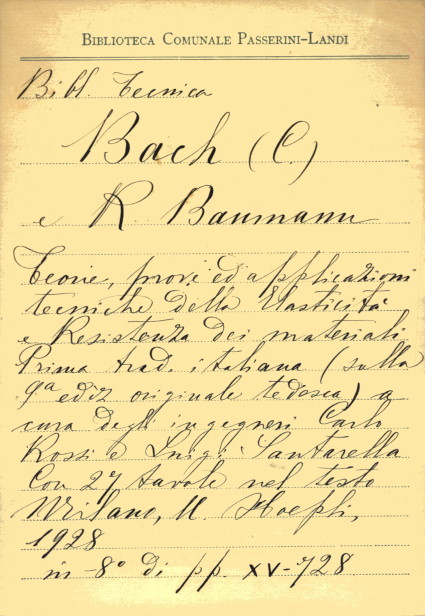 BIBLIOTECA COMUNALE PASSERINI-LANDI
Bibl. Tecnica
Bach (C.)
e R. Baumann
Teorie, prove ed applicazioni
tecniche della Elasticità
e Resistenza dei materiali
Prima trad. italiana (sulla
9ª ediz originale tedesca) a
cura degli ingegneri Carlo
Rossi e Luigi Santarella
Con 27 tavole nel testo
Milano, U. Hoepli,
1928
in-8° di pp. XV-728